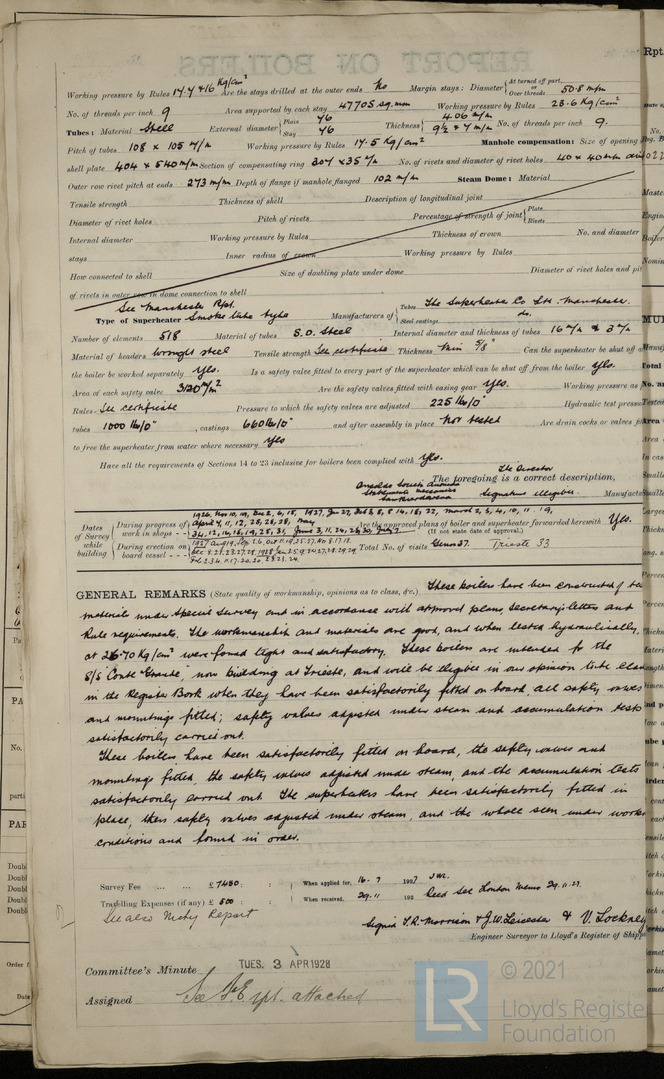 REPORT ON BOILERS
Working pressure by Rules 17.4 & 16 Kg/cm² Are the stays drilled at the outer ends No Margin stays: Diameter { At turned off part, or Over threads 50.8 m/m
No. of threads per inch 9 Area supported by each stay 47705 sq.mm Working pressure by Rules 25.6 Kg/cm²
Tubes: Material Steel External diameter { Plain 76 Stay 76 Thickness { 4.06 m/m 9½ & 7 m/m No. of threads per inch 9.
Pitch of tubes 108 x 105 m/m Working pressure by Rules 17.5 Kg/cm² Manhole compensation: Size of opening
shell plate 404 x 540 m/m Section of compensating ring 307 x 35 m/m No. of rivets and diameter of rivet holes 40 x 40 m/m
Outer row rivet pitch at ends 273 m/m Depth of flange if manhole flanged 102 m/m Steam Dome: Material
Tensile strength Thickness of shell Description of longitudinal joint
Diameter of rivet holes Pitch of rivets Percentage of strength of joint { Plate Rivets
Internal diameter Working pressure by Rules Thickness of crown No. and diameter
stays Inner radius of crown Working pressure by Rules
How connected to shell Size of doubling plate under dome Diameter of rivet holes and pit
of rivets in outer row in dome connection to shell
See Manchester Rpt.
Type of Superheater Smoke tube type Manufacturers of { Tubes The Superheater Co Ltd. Manchester. Steel castings do.
Number of elements 518 Material of tubes S.D. Steel Internal diameter and thickness of tubes 16 m/m & 3 m/m
Material of headers Wrought steel Tensile strength See certificate Thickness Min 5/8" Can the superheater be shut off a
the boiler be worked separately Yes. Is a safety valve fitted to every part of the superheater which can be shut off from the boiler Yes.
Area of each safety valve 3120 m/m² Are the safety valves fitted with easing gear Yes. Working pressure as
Rules See certificate Pressure to which the safety valves are adjusted 225 lb/□" Hydraulic test pressu
tubes 1000 lb/□" , castings 660 lb/□" and after assembly in place Not tested Are drain cocks or valves fi
to free the superheater from water where necessary Yes
Have all the requirements of Sections 14 to 23 inclusive for boilers been complied with Yes.
The Director
The foregoing is a correct description,
Ansaldo Società Anonima
Stabilimento Meccanico
Sampierdarena Signature illegible. Manufactu
Dates of Survey while building
During progress of work in shops - -
1926, Nov 10, 19, Dec 2, 6, 18, 1927, Jan 27, Feb 3, 8, 8, 14, 18, 22, March 2, 3, 4, 10, 11, 19,
Are the approved plans of boiler and superheater forwarded herewith Yes.
(If not state date of approval.)
During erection on board vessel - - -
Total No. of visits Genoa 37. Trieste 33
GENERAL REMARKS (State quality of workmanship, opinions as to class, &c.) These boilers have been constructed of
materials under special survey and in accordance with approved plans, Secretary's letters and
Rule requirements. The workmanship and materials are good, and when tested hydraulically,
at 26.70 Kg/cm² were found tight and satisfactory. These boilers are intended for the
S/S "Conte Grande", now building at Trieste, and will be eligible in our opinion to be
in the Register Book when they have been satisfactorily fitted on board, all safety valves
and mountings fitted; safety valves adjusted under steam and accumulation tests
satisfactorily carried out.
These boilers, have been satisfactorily fitted on board, the safety valves and
mountings fitted, the safety valves adjusted under steam, and the accumulation tests
satisfactorily carried out. The superheaters have been satisfactorily fitted in
place, their safety valves adjusted under steam, and the whole seen under work
conditions and found in order.
Survey Fee ... ... £ 7450: : When applied for, 16. 7 1927 J.W.L.
Travelling Expenses (if any) £ 500 : : When received, 29.11 192 Recd See London Memo 29.11.27.
See also Report
Signed T.R. Morrison & J.W. Leicester & V. Lockney
Engineer Surveyor to Lloyd's Register of Shipp
Committee's Minute TUES. 3 APR 1928
Assigned See F.E. rpt. attached
LR © 2021
Lloyd's Register
Foundation